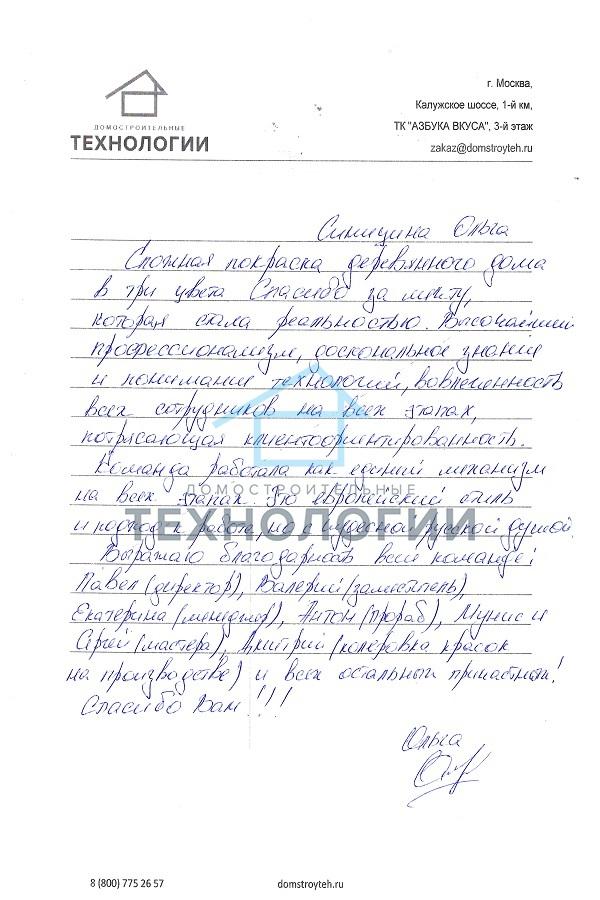 г. Москва,
Калужское шоссе, 1-й км,
ТК "АЗБУКА ВКУСА", 3-й этаж
zakaz@domstroyteh.ru
ДОМОСТРОИТЕЛЬНЫЕ
ТЕХНОЛОГИИ
Синицина Ольга
Сложная покраска деревянного дома
в три цвета Спасибо за мечту,
которая стала реальностью. Высочайший
профессионализм, доскональное знание
и понимание технологий, вовлеченность
всех сотрудников на всех этапах,
потрясающая клиентоориентированность.
Команда работала как единый механизм
на всех этапах. Это европейский стиль
и подход к работе, но с чудесной русской душой.
Выражаю благодарность всей команде:
Павел (директор), Валерий (заместитель),
Екатерина (менеджер), Антон (прораб), Мунис и
Сергей (мастера), Дмитрий (колеровка красок
на производстве) и всех остальных причастных!
Спасибо Вам!!!
Ольга
ДОМОСТРОИТЕЛЬНЫЕ
ТЕХНОЛОГИИ
8 (800) 775 26 57
domstroyteh.ru